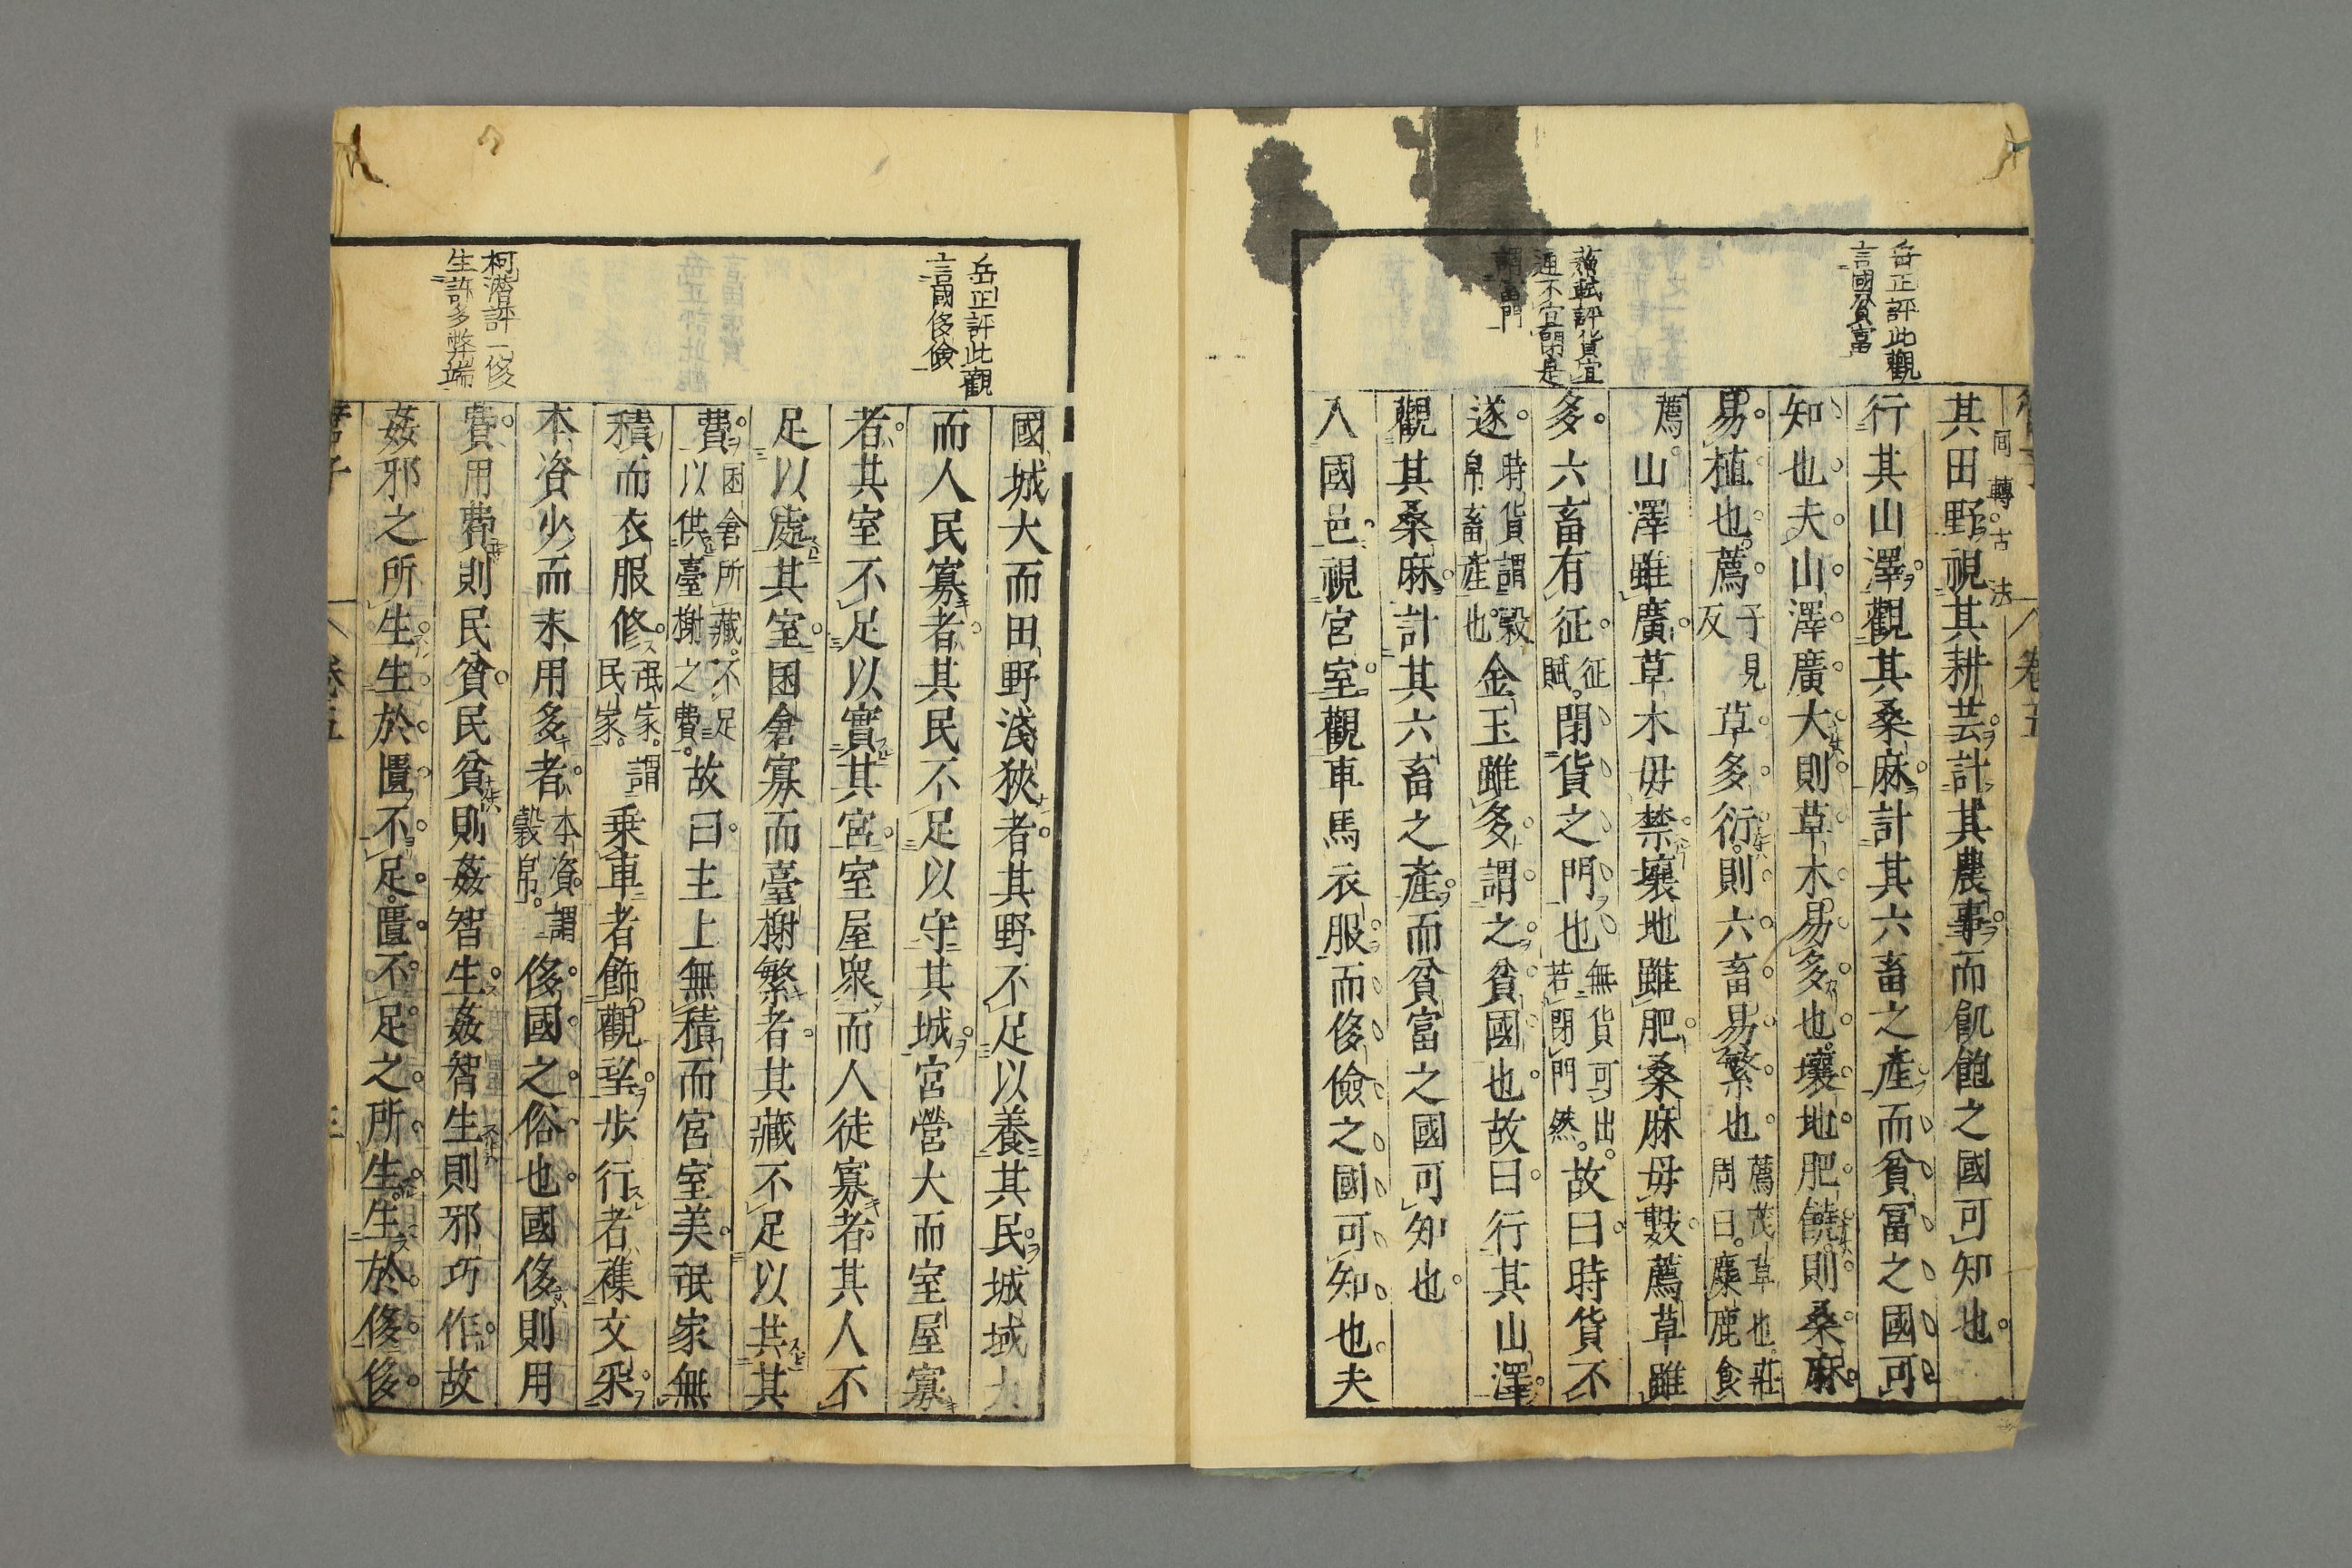 岳正評此觀
言國貧富
蘇軾評貨宜
通不宜閉是
謂富門
回轉古法
其田野視其耕芸計其農事而飢飽之國可知也
行其山澤觀其桑麻計其六畜之產而貧冨之國可
知也夫山澤廣大則草木易多也壤地肥饒則桑麻
易植也薦子見反草多衍則六畜易繁也薦茂草也莊周曰麋鹿食
薦山澤雖廣草木毋禁壤地雖肥桑麻毋數薦草雖
多六畜有征征賦閉貨之門也無貨可出若閉門然故曰時貨不
遂時貨謂穀帛畜產也金玉雖多謂之貧國也故曰行其山澤
觀其桑麻計其六畜之產而貧富之國可知也
入國邑視宮室觀車馬衣服而侈儉之國可知也夫
岳正評此觀
言國侈儉
柯潛評一侈
生許多弊端
國城大而田野淺狹者其野不足以養其民城域大
而人民寡者其民不足以守其城宮營大而室屋寡
者其室不足以實其宮室屋衆而人徒寡者其人不
足以處其室囷倉寡而臺榭繁者其藏不足以共其
費囷倉所藏不足以供臺榭之費故曰主上無積而宮室美氓家無
積而衣服修氓家謂民家乗車者飾觀望步行者襍文采
本資少而末用多者本資謂穀帛侈國之俗也國侈則用
費用費則民貧民貧則姦智生姦智生則邪巧作故
姦邪之所生生於匱不足匱不足之所生生於侈侈